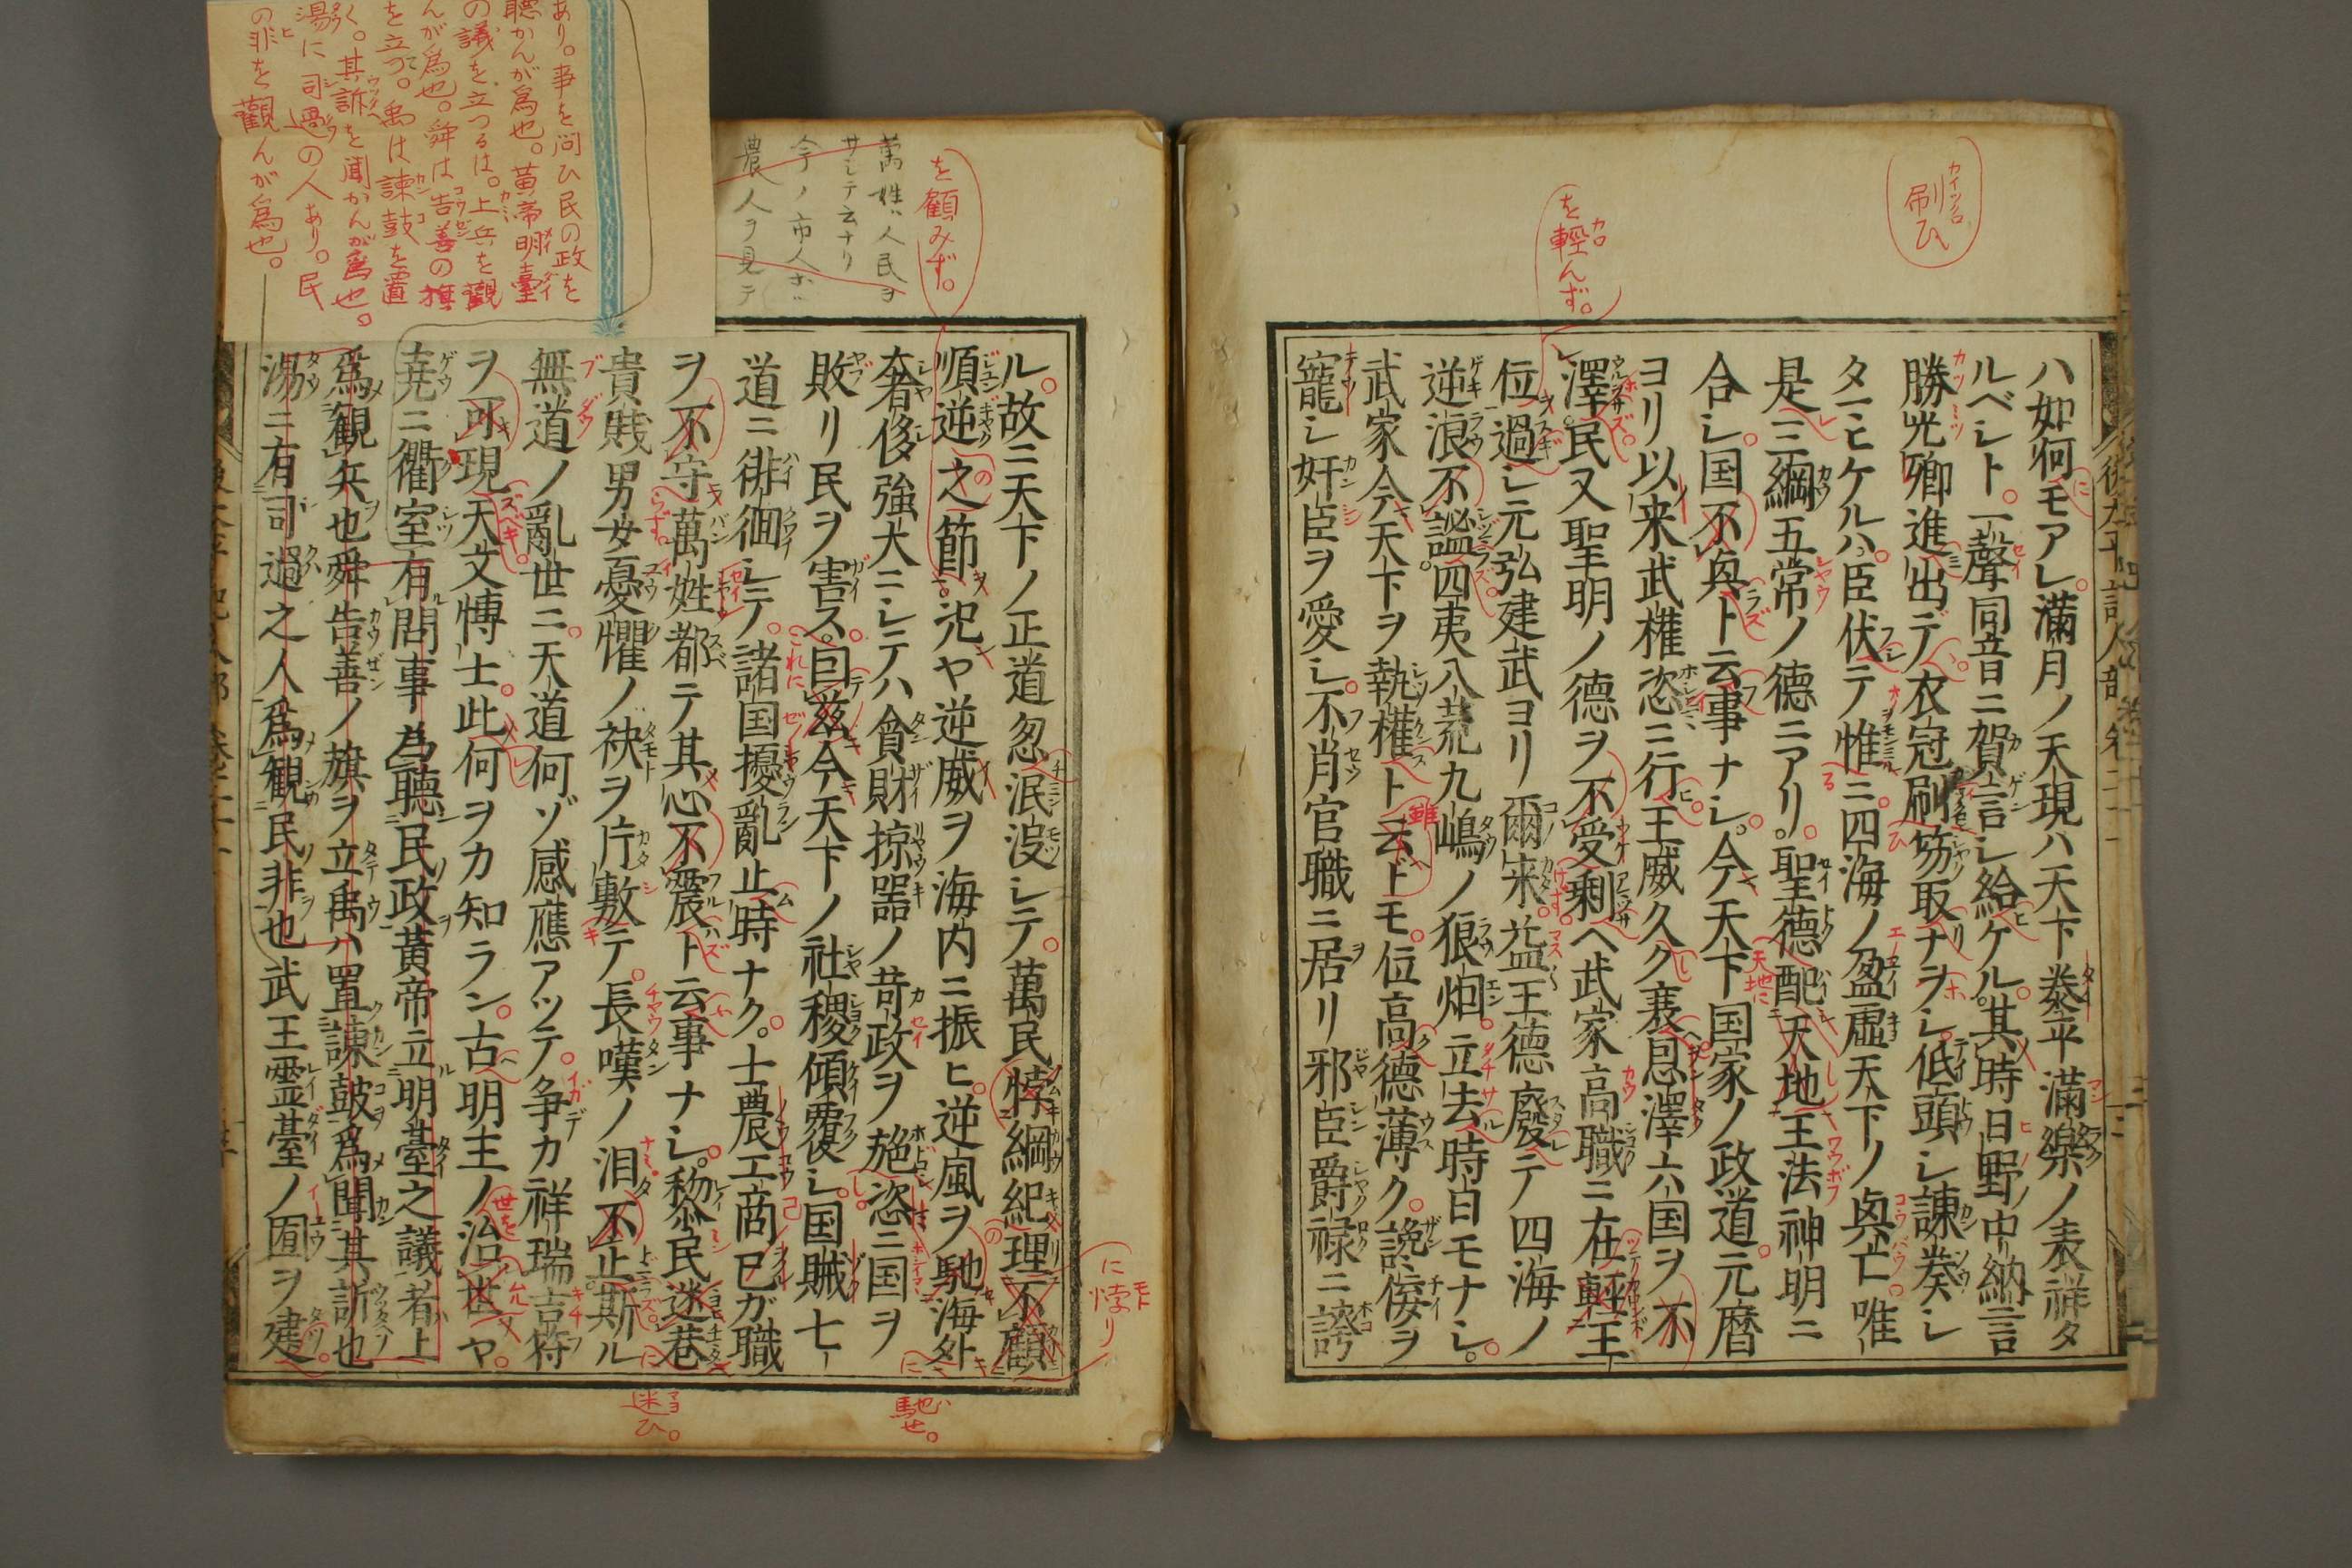 ハ如何モアレ。満月ノ天現ハ天下泰平満樂ノ表祥タ
ルベシト。一聲同音ニ賀言シ給ケル。其時日野中納言
勝光卿進出デ衣冠刷笏取ナヲシ低頭シ諌奏シ
タニヒケルハ。臣伏テ惟ニ四海ノ盈虚天下ノ興亡唯
是三綱五常ノ德ニアリ。聖德配天地王法神明ニ
合シ国不與ト云事ナシ。今天下国家ノ政道元暦
ヨリ以来武權恣ニ行王威久ク衰恩澤六国ヲ不
澤。民又聖明ノ德ヲ不受剰ヘ武家高職ニ在輕王
位過シ元弘建武ヨリ爾来益王德廢テ四海ノ
逆浪不謐。四夷八荒九嶋ノ狼烟立去時日モナシ。
武家今天下ヲ執權ト云ドモ位高德薄ク。讒佞ヲ
寵シ奸臣ヲ愛シ不肖官職ニ居リ邪臣爵禄ニ誇
ル。故ニ天下ノ正道忽泯没シテ。萬民悖綱紀理不顧
順逆之節。况ヤ逆威ヲ海内ニ振ヒ。逆風ヲ馳海外
奢侈強大ニシテハ貪財掠器ノ苛政ヲ施恣ニ国ヲ
敗リ民ヲ害ス。自茲今天下ノ社稷傾覆シ。国賊七
道ニ徘徊シテ。諸国擾亂止時ナク。士農工商已ガ職
ヲ不守萬姓都テ其心不震ト云事ナシ。黎民迷巷
貴賤男女憂懼ノ袂ヲ片敷テ。長嘆ノ泪不止斯ル
無道ノ亂世ニ天道何ゾ感應アツテ。争カ祥瑞吉符
ヲ可現天文博士此何ヲカ知ラン。古明主ノ治世ヤ
堯ニ衢室有問事為聽民政黄帝立明臺之議者上
為觀兵也舜告善ノ旗ヲ立禹ハ置諌鼓為聞其訴也
湯ニ有司過之人為觀民非也武王霊臺ノ囿ヲ建
刷ひ
を輕んず。
を顧みず。
萬姓ハ人民ヲ
サシテ云ナリ
今ノ市人ホ
農人ヲ見テ
に悖り
馳せ。
迷ひ。
あり。事を问ひ民の政を
聴かんが爲也。黄帝明臺
の議を立つるは。上兵を觀
んが爲也。舜は告善の旗
を立つ。禹は諫鼓を置
く。其訴を聞かんが爲也。
湯に司過の人あり。民
の非を觀んが爲也。